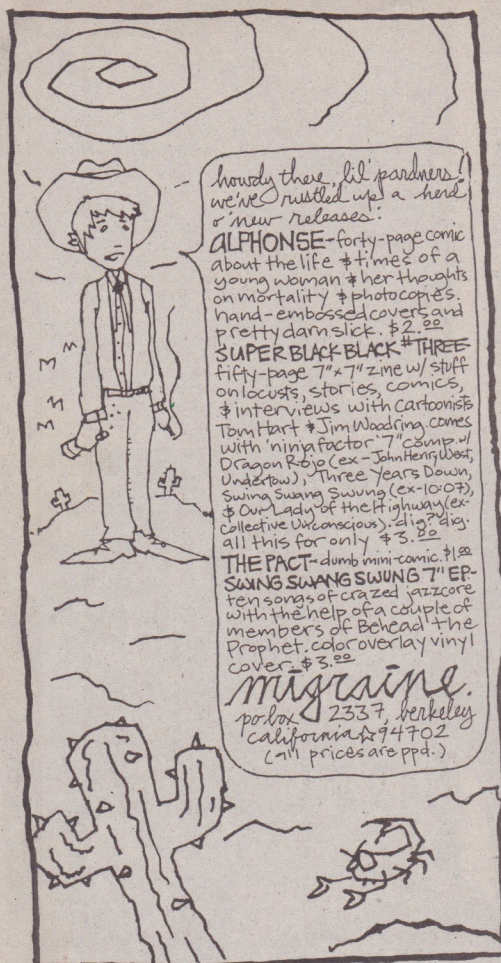 howdy there, lil' pardners!
we've rustled up a herd
o' new releases:
ALPHONSE-forty-page comic
about the life & times of a
young woman & her thoughts
on mortality & photocopies.
hand-embossed covers and
pretty darn slick. $2.00
SUPER BLACK BLACK #THREE-
fifty-page 7"x7" zine w/ stuff
on locusts, stories, comics,
& interviews with cartoonists
Tom Hart & Jim Woodring. comes
with 'ninja factor' 7" comp. w/
Dragon Rojo (ex-John Henry West,
Undertow), Three Years Down,
Swing Swang Swung (ex-10:07),
& Our Lady of the Highway (ex-
Collective Unconscious). dig? dig.
all this for only $3.00
THE PACT-dumb mini-comic. $1.00
SWING SWANG SWUNG 7" EP-
ten songs of crazed jazzcore
with the help of a couple of
members of Behead the
Prophet. color overlay vinyl
cover. $3.00
migraine.
po box 2337, berkeley
california☆94702
(all prices are ppd.)